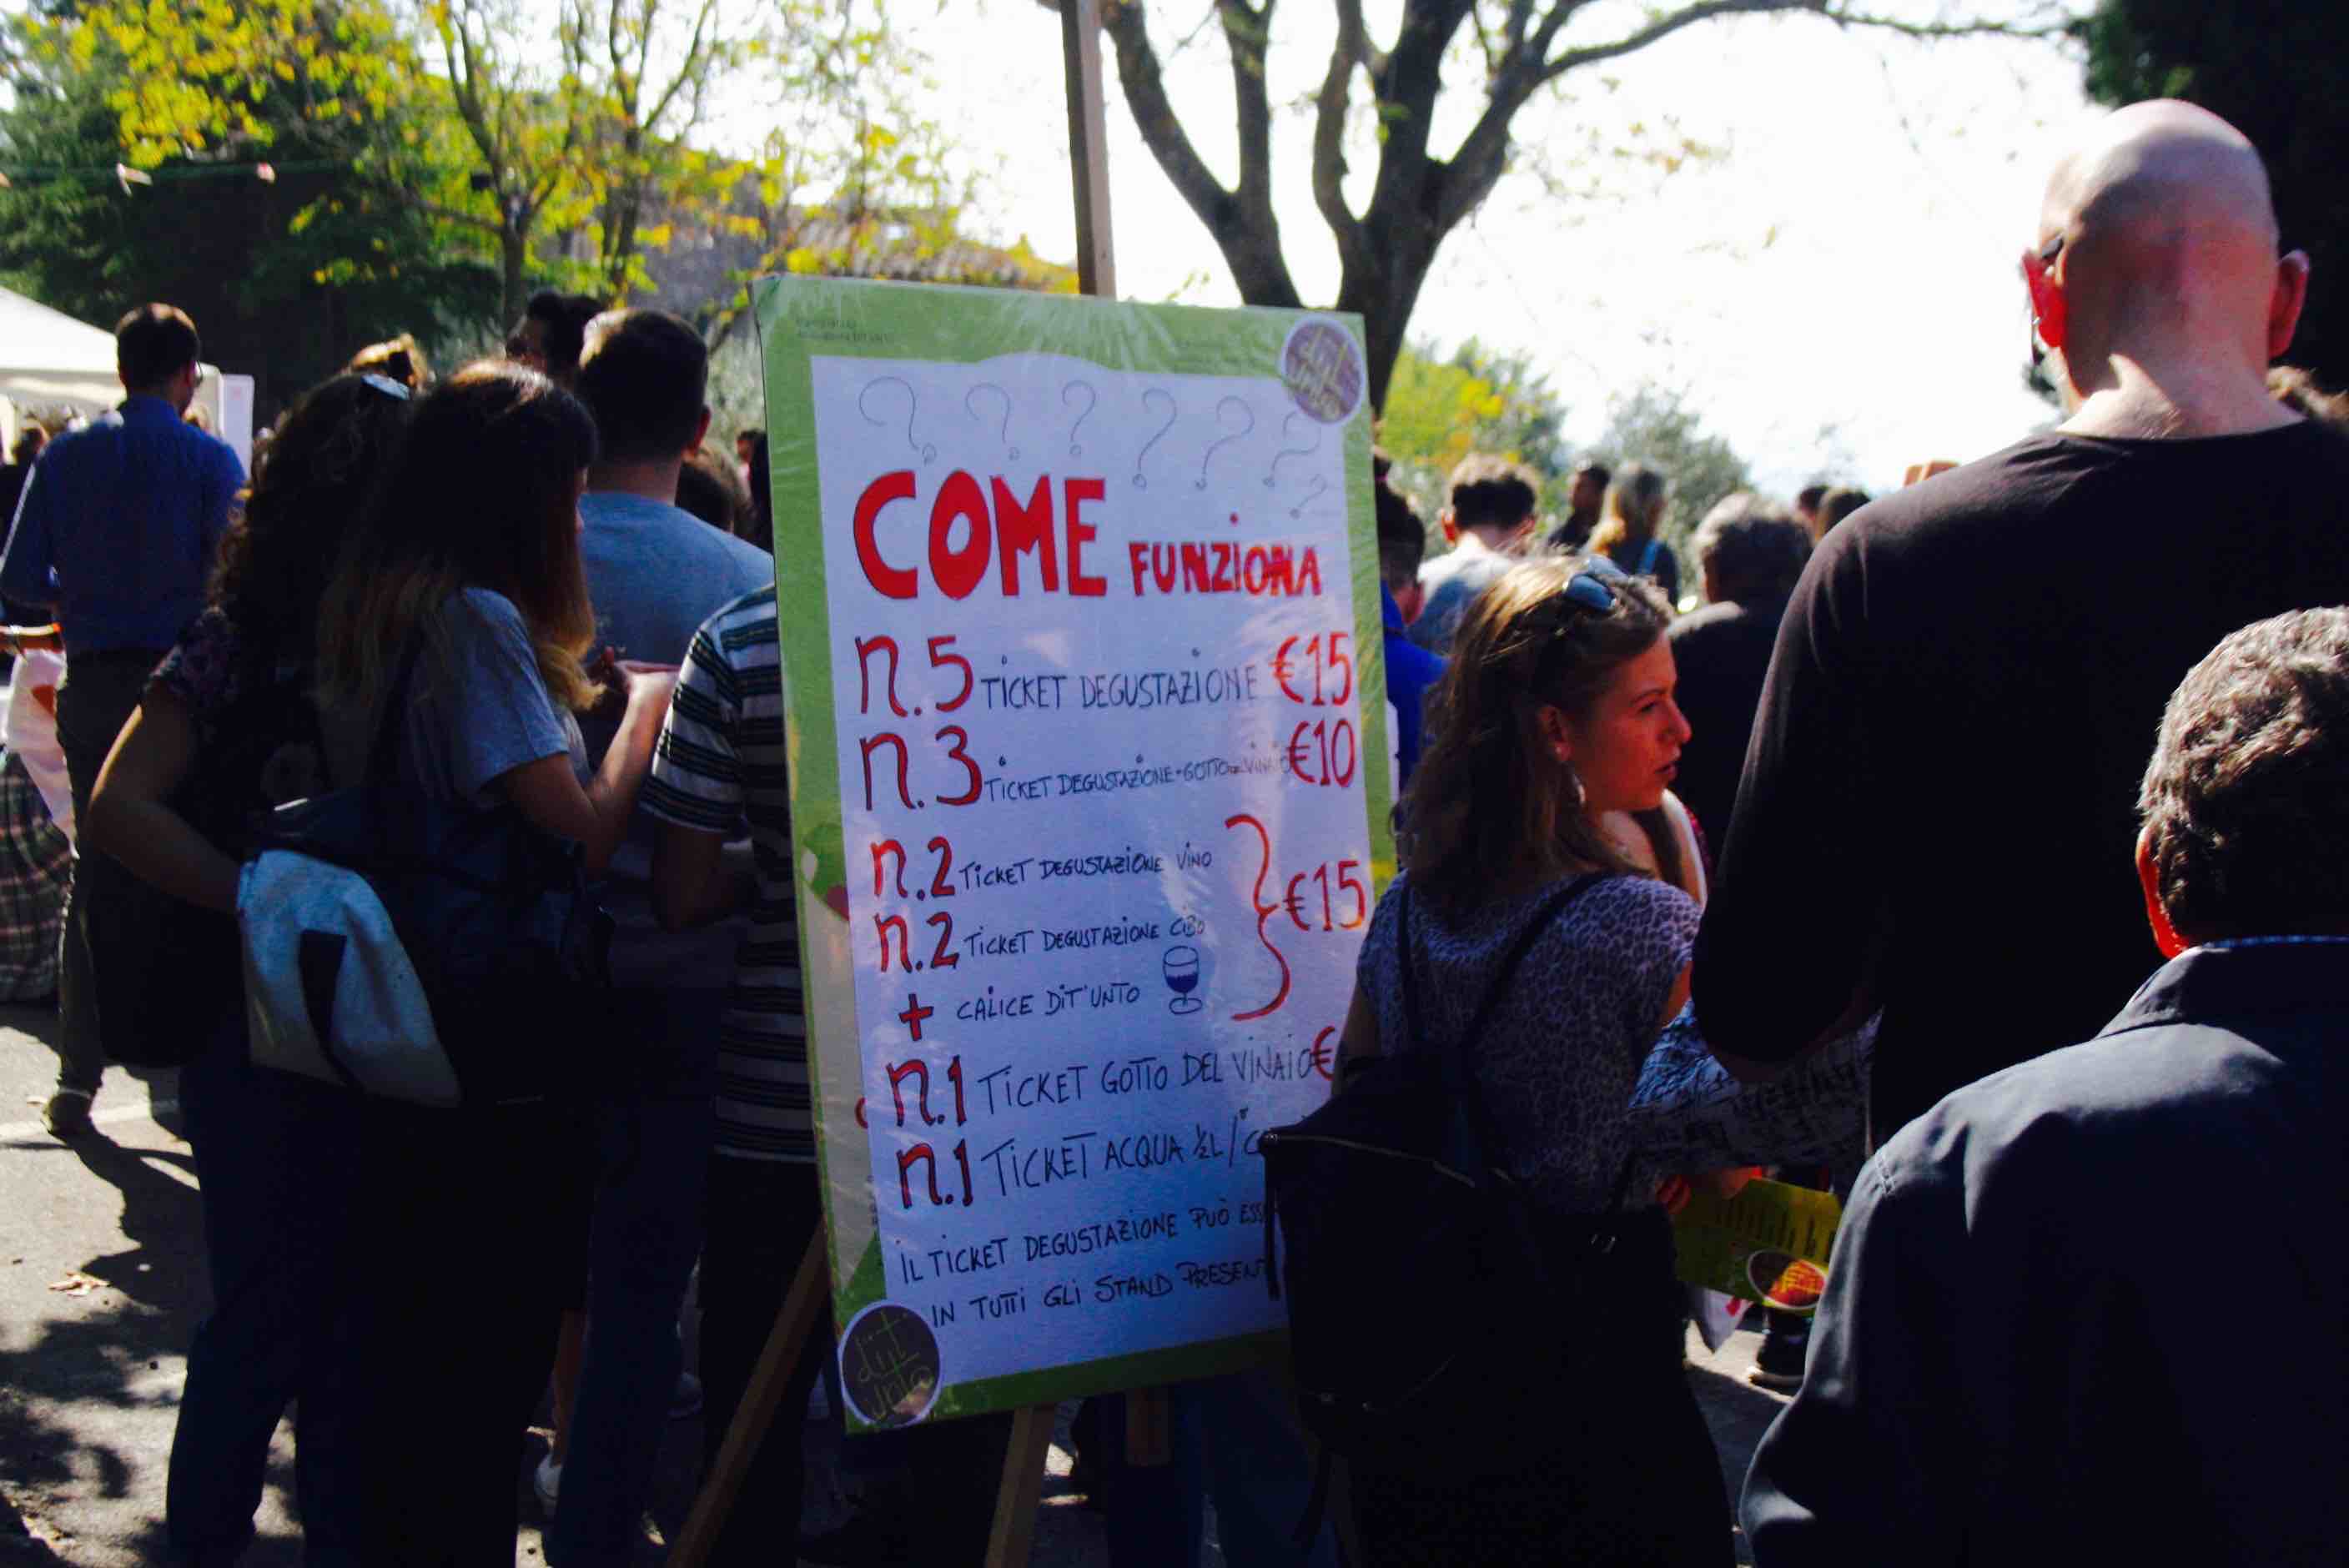 ? ? ? ? ? ?
?
COME FUNZIONA
n.5 TICKET DEGUSTAZIONE €15
n.3 TICKET DEGUSTAZIONE+GOTTO DEL VINAIO €10
n.2 TICKET DEGUSTAZIONE VINO
€15
n.2 TICKET DEGUSTAZIONE CIBO
+ CALICE DIT'UNTO
n.1 TICKET GOTTO DEL VINAIO €
n.1 TICKET ACQUA ½L/
IL TICKET DEGUSTAZIONE PUÒ
IN TUTTI GLI STAND
dit
unto